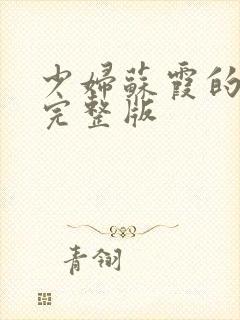 少婦蘇霞的
完整版
青翎